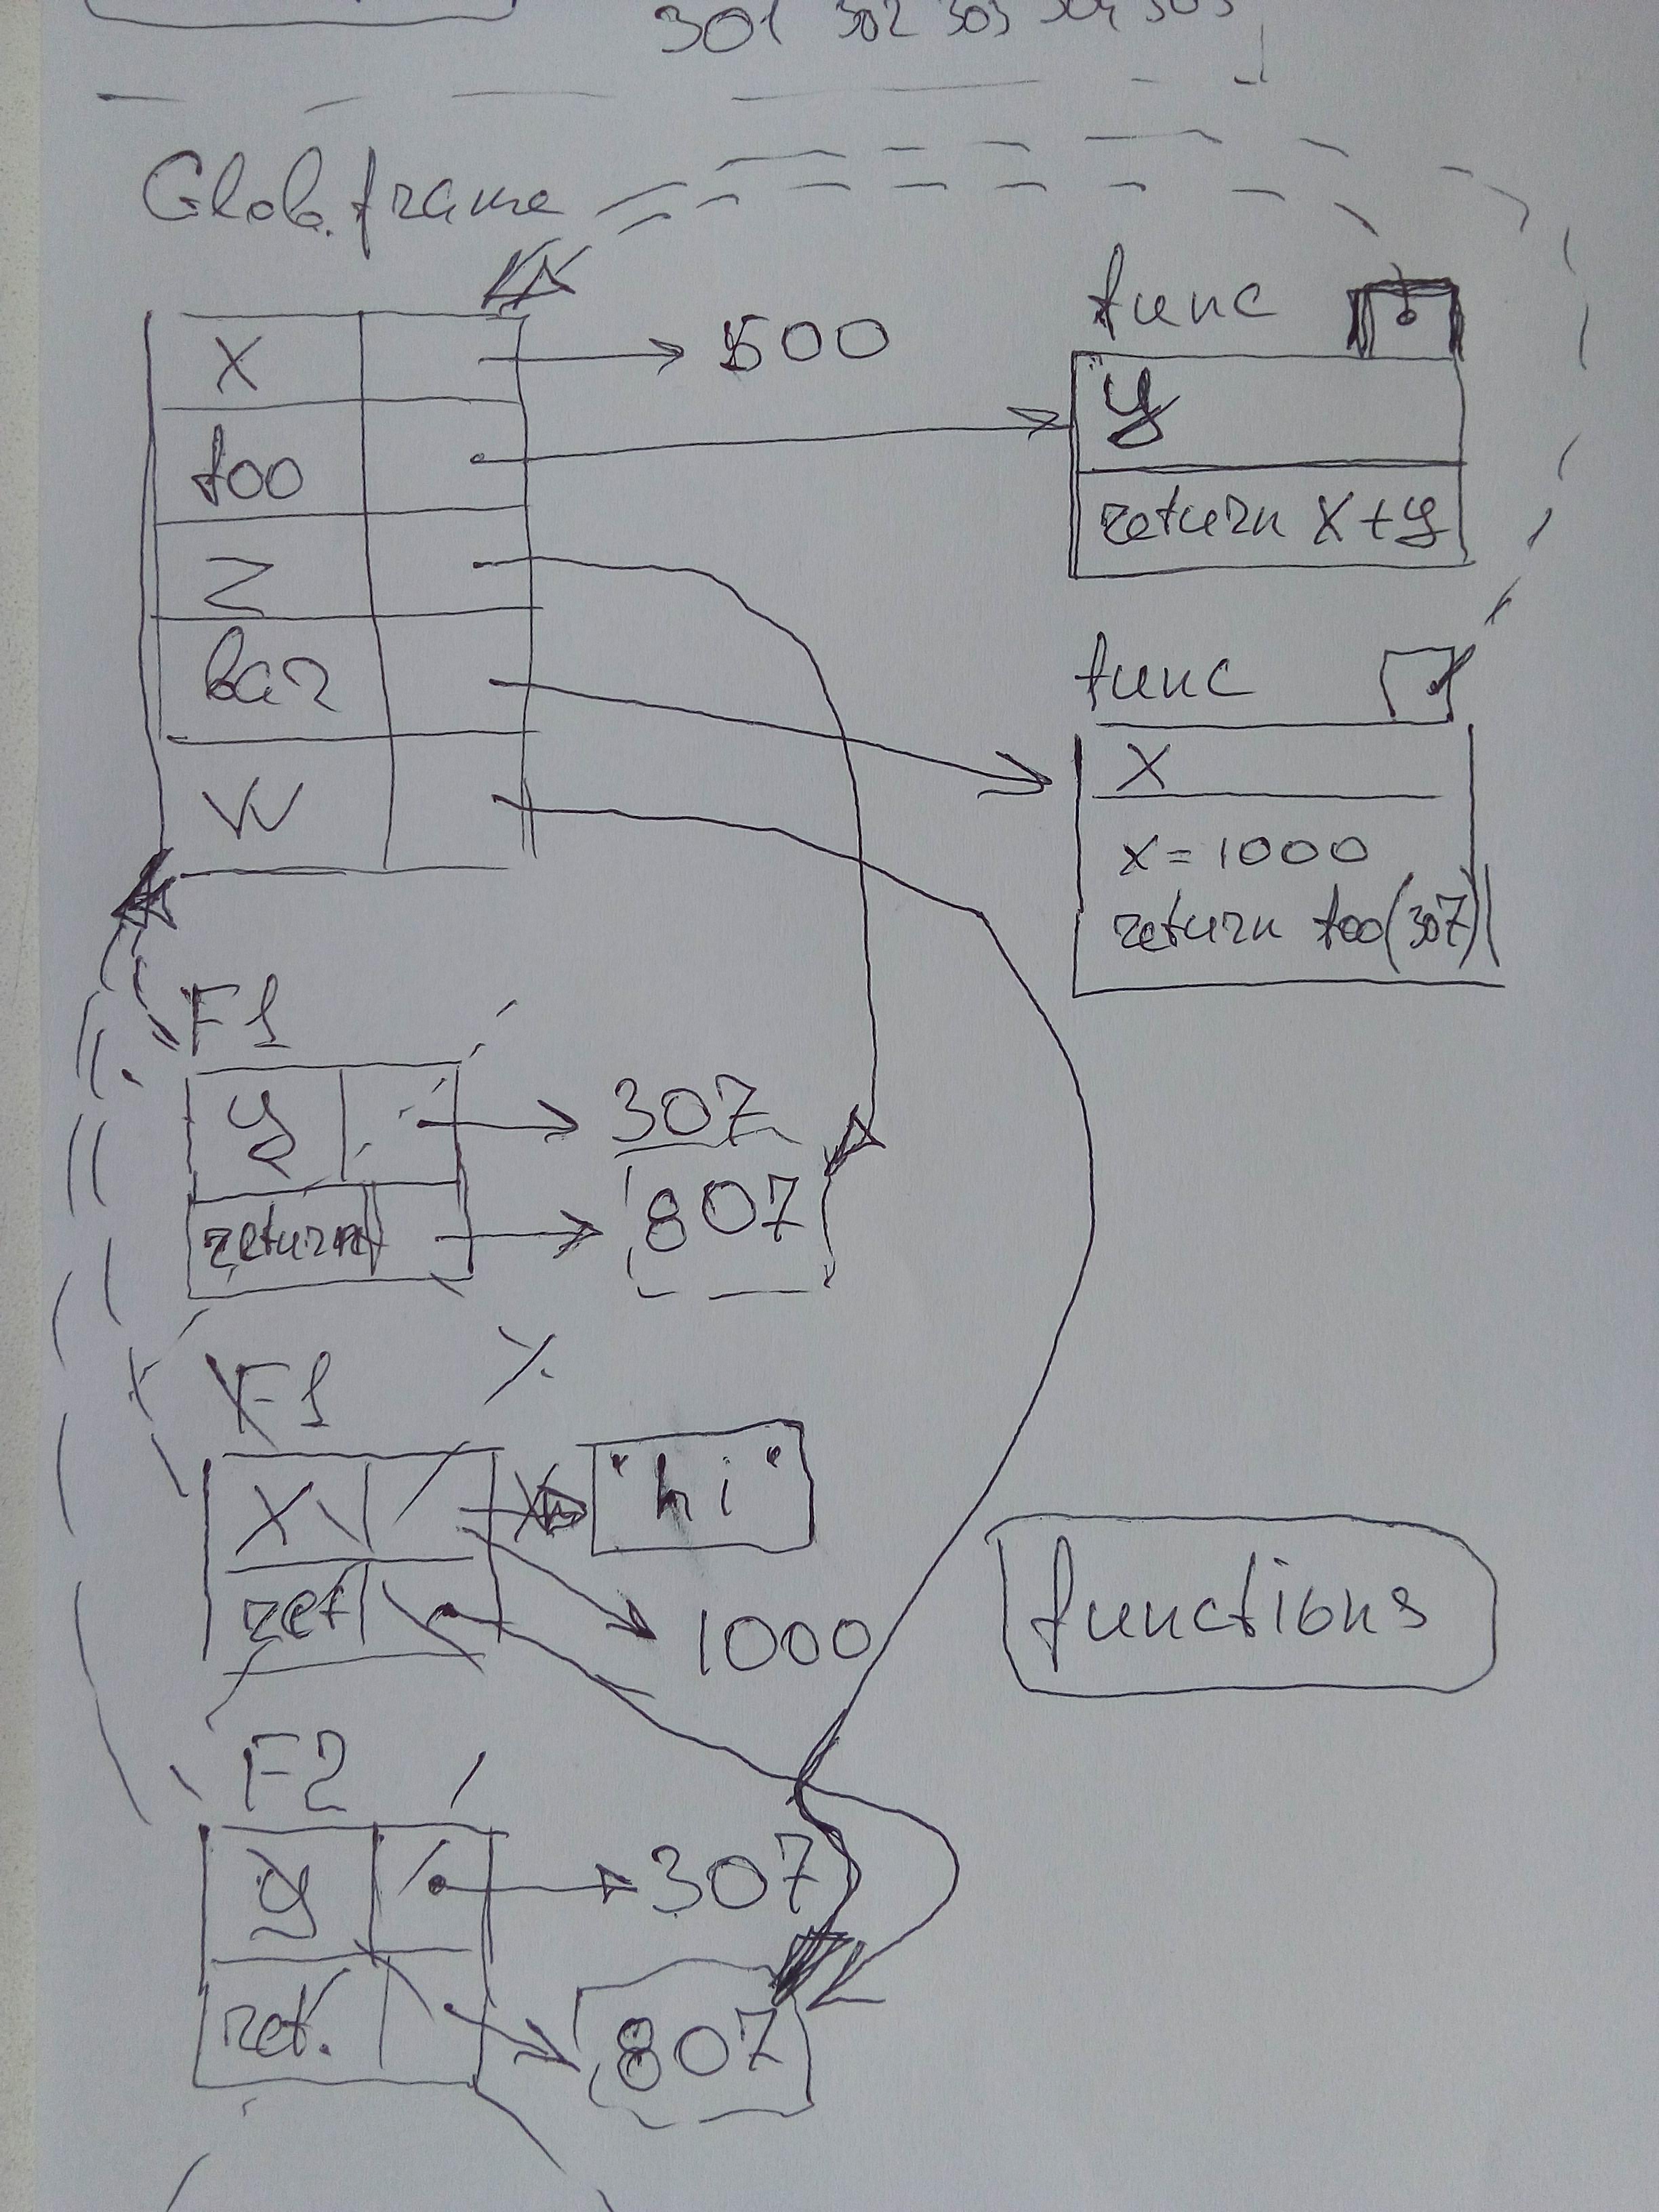 301 302 303 304 305
Glob. frame
X 500
foo
Z
bar
W
func
y
return X+y
func
X
x = 1000
return foo(307)
F1
y 307
return 807
F1
X "hi"
ret 1000
F2
y 307
ret. 807
functions